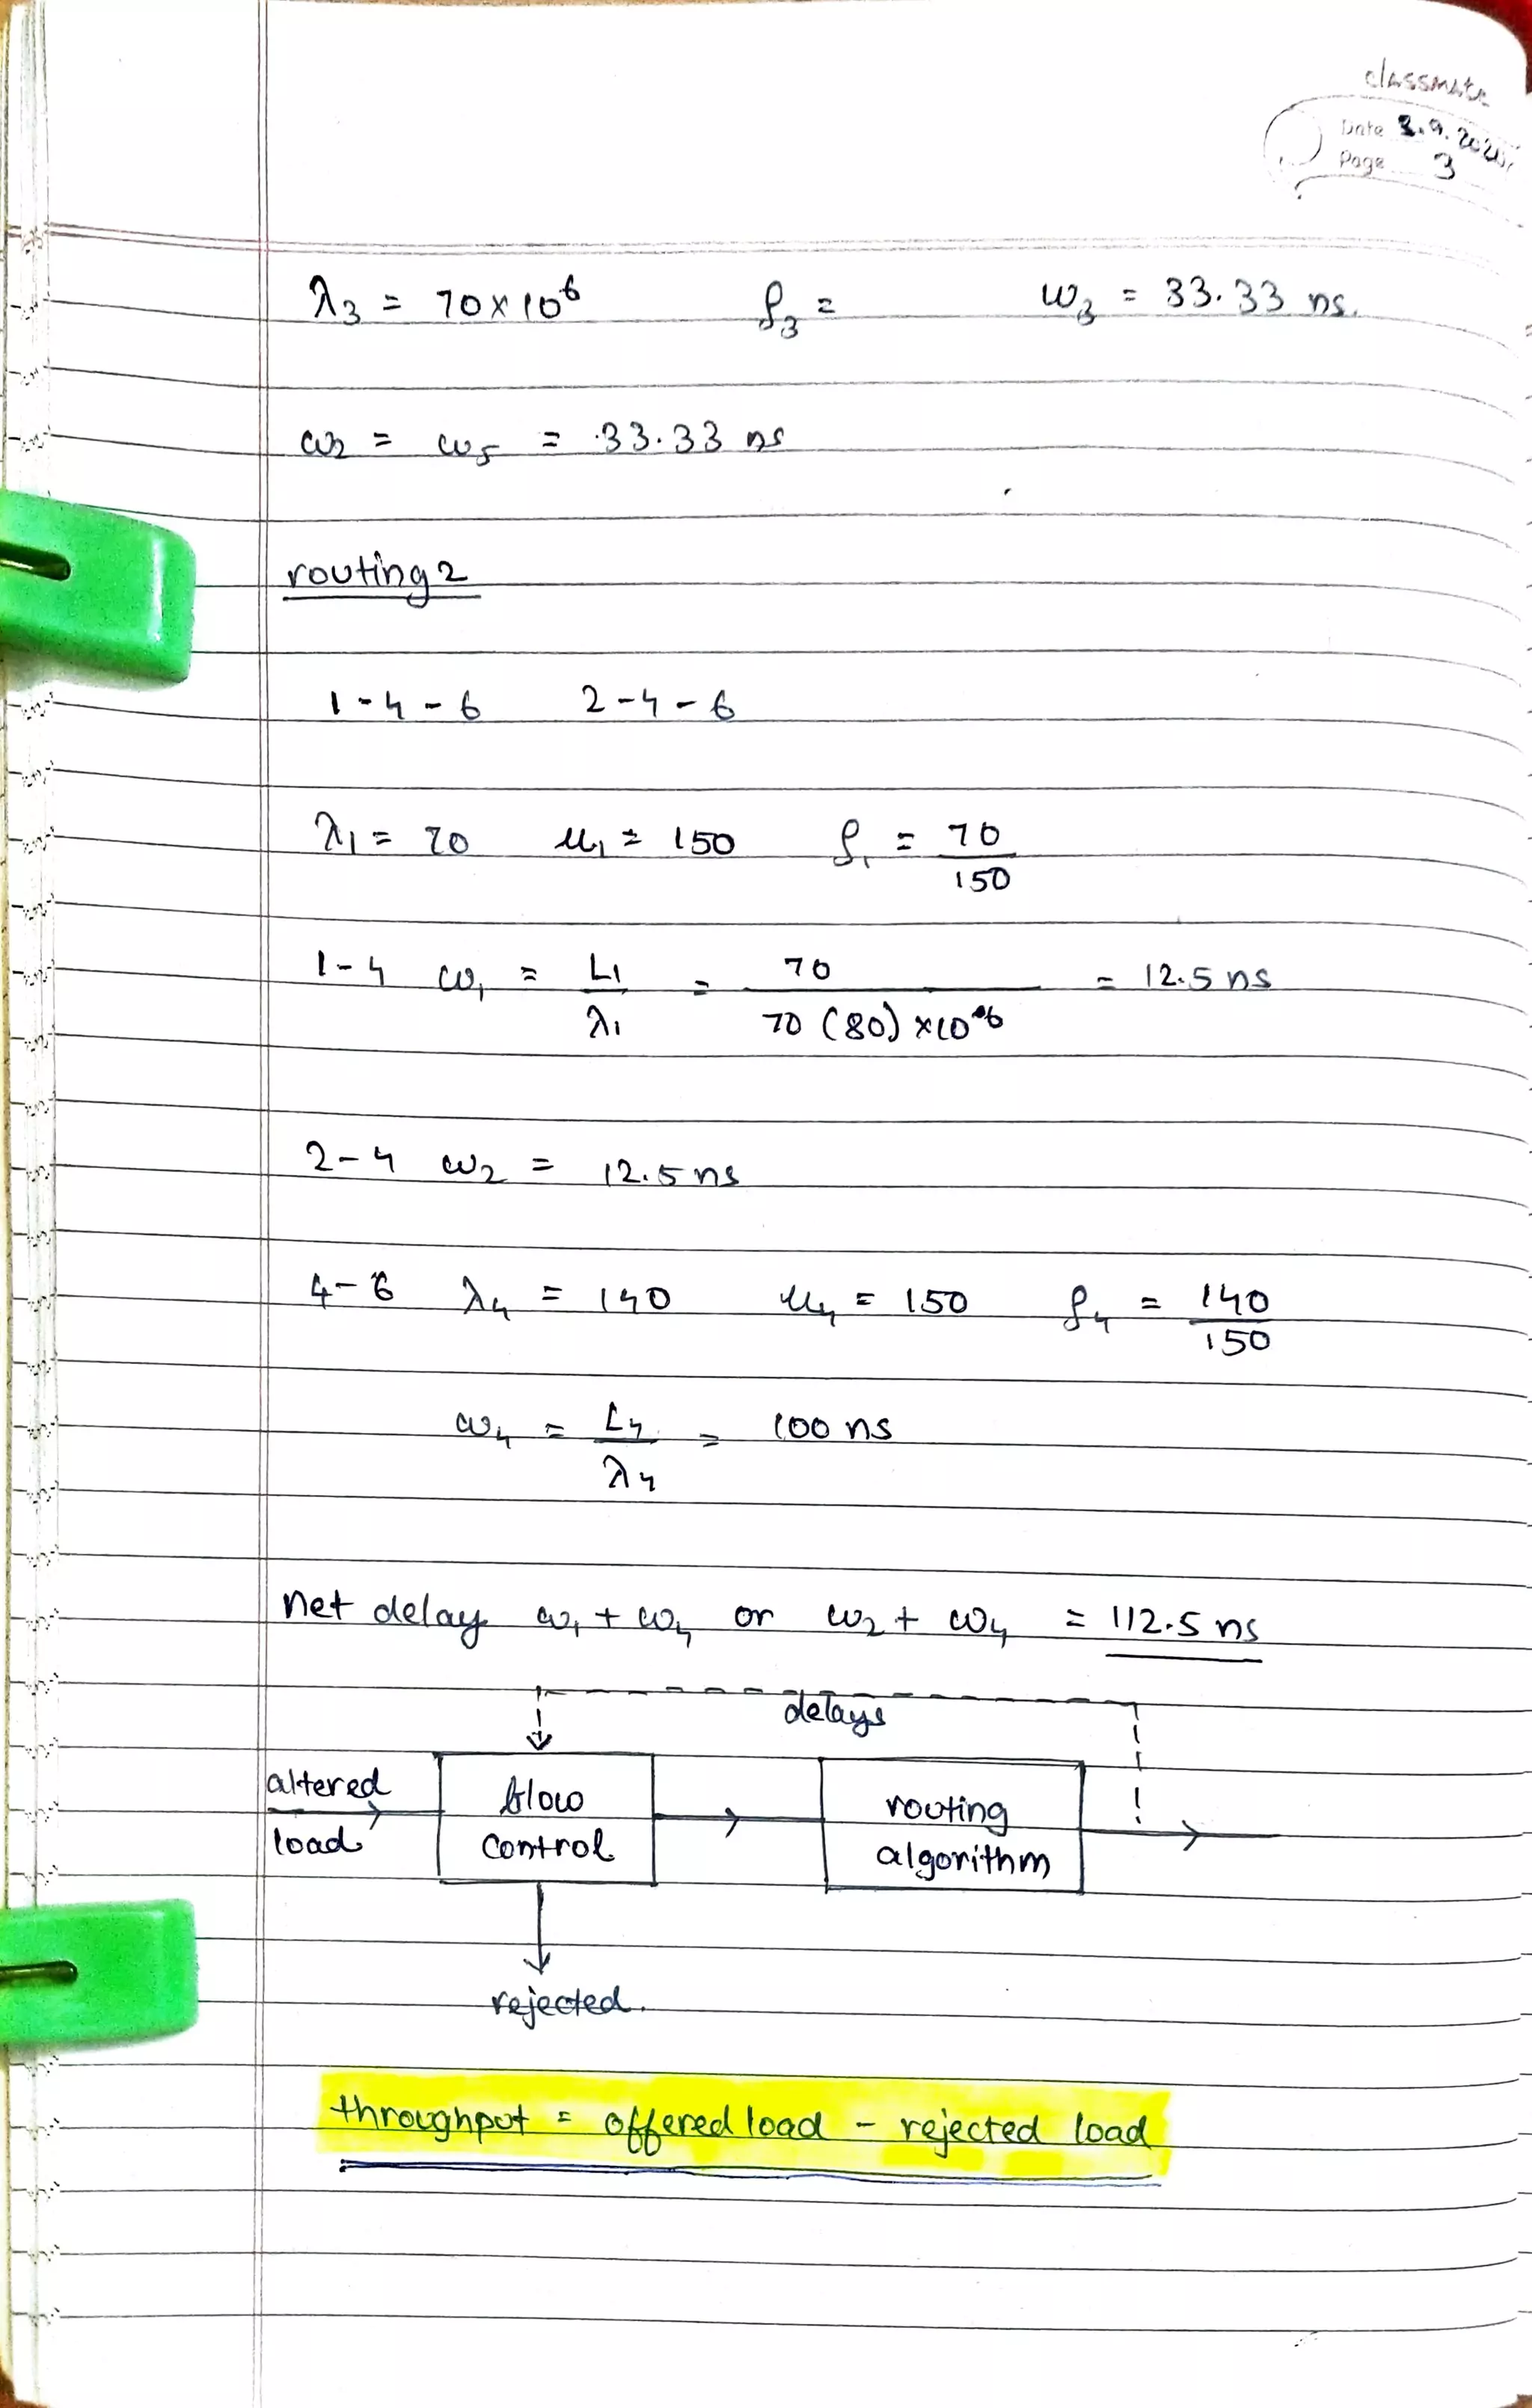 classmate
Date 3.9.202
Page 3
λ3 = 70×10^6 ρ3 = W3 = 33.33 ns.
ω2 = ω5 = 33.33 ns
routing 2
1-4-6 2-4-6
λ1 = 70 μ1 = 150 ρ1 = 70/150
1-4 ω1 = L1/λ1 = 70/70(80)×10^6 = 12.5 ns
2-4 ω2 = 12.5 ns
4-6 λ4 = 140 μ4 = 150 ρ4 = 140/150
ω4 = L4/λ4 = 100 ns
net delay ω1 + ω4 or ω2 + ω4 = 112.5 ns
delays
altered load
flow control
routing algorithm
rejected.
throughput = offered load - rejected load